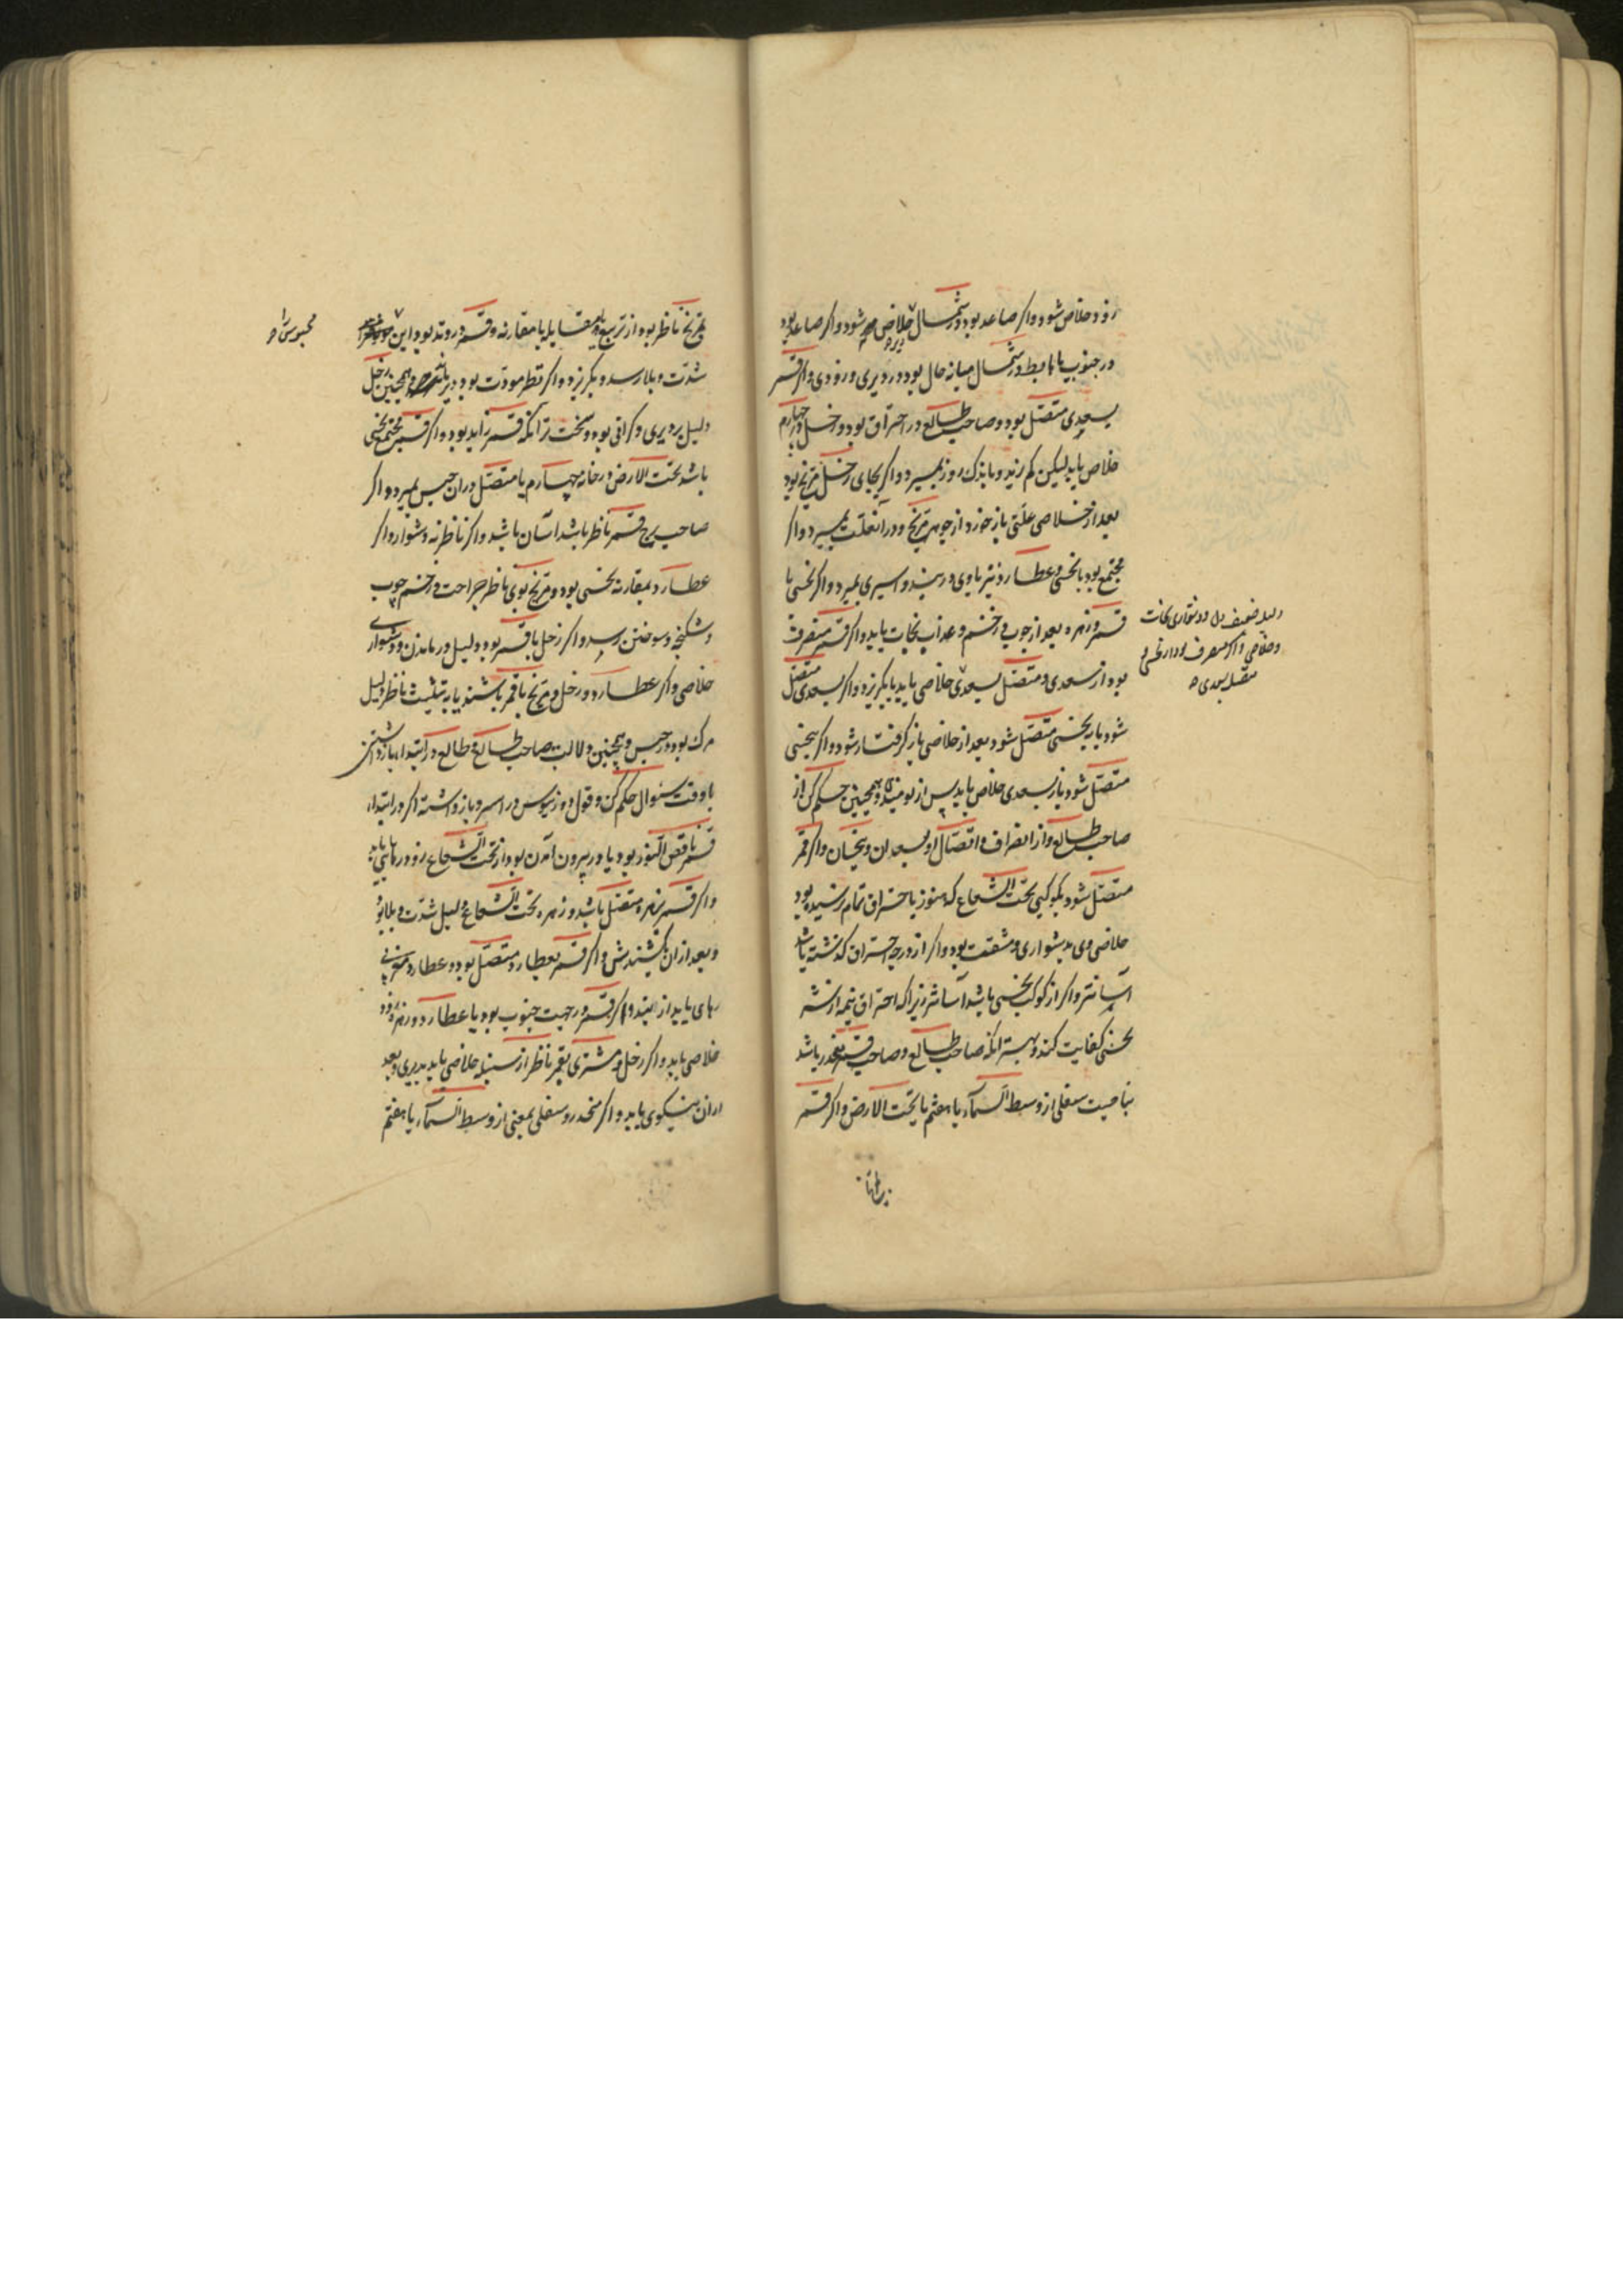 زود خلاص شود و اگر صاعد بود و شمال خلاص شود و اگر صاعد بود
در جنوب یا هابط در شمال میانه حال بود در دیری و زودی و اگر قمر
بسعدی متصل بود و صاحب طالع در احتراق بود و زحل در چهارم
خلاص یابد لیکن کم زید و باندک روز بمیرد و اگر بجای زحل مریخ بود
بعد از خلاصی علتی بازخورد از جوهر مریخ و در آن علت بمیرد و اگر
مجتمع بود با نحسی و عطارد نیز باوی در بند و اسیری بمیرد و اگر نحسی با
قمر و زهره بعد از چوب و زخم و عذاب نجات یابد و اگر قمر منصرف
بود از سعدی و متصل بسعدی خلاصی یابد یا بگریزد و اگر بسعدی متصل
شود باز بنحسی متصل شود بعد از خلاصی باز گرفتار شود و اگر بنحسی
متصل شود باز بسعدی خلاص یابد پس از نومیدی و همچنین حکم کن از
صاحب طالع و از انصراف و اتصال او بسعدان و نحسان و اگر قمر
متصل شود بکوکبی تحت الشعاع که هنوز باحتراق تمام نرسیده بود
خلاصی وی بدشواری و مشقت بود و اگر از درجه احتراق گذشته باشد
آسانتر و اگر از کوکب نحسی باشد آسانتر زیرا که احتراق نیمه از شر
نحسی کفایت کند و بهتر آنکه صاحب طالع و صاحب قمر منحدر باشد
بناحیت سفلی از وسط السماء یا هفتم یا تحت الارض و اگر قمر
دلیل ضعیف دل
و خلاصی و اگر منصرف بود از نحسی و
متصل بسعدی
بمریخ ناظر بود از تربیع یا مقابله یا مقارنه و قمر در وتد بود این
محبوس را
شدت و بلا رسد و بگریزد و همچنین زحل
دلیل بر دیری و گرانی بود و سخت تر آنکه قمر زاید بود و اگر قمر مجتمع نحسی
باشد تحت الارض در خانه چهارم یا متصل در آن حبس بمیرد و اگر
صاحب برج قمر ناظر باشد آسان باشد و اگر ناظر نه دشوار و اگر
عطارد بمقارنه نحسی بود و مریخ بوی ناظر جراحت و زخم چوب
و شکنجه و سوختن رسد و اگر زحل با قمر بود دلیل درماندن و دشواری
خلاصی و اگر عطارد و زحل و مریخ با قمر باشند یا به تثلیث ناظر دلیل
مرگ بود در حبس و همچنین دلالت صاحب طالع و طالع در ابتداء بازداشتن
یا وقت سؤال حکم کن و قول دوزنیوس در اسیر و بازداشته اگر در ابتداء
قمر ناقص النور بود یا در بیرون آمدن بود از تحت الشعاع زود رهایی یابد
و اگر قمر بزهره متصل باشد و زهره تحت الشعاع دلیل شدت و بلا بود
و بعد از آن بکشندش و اگر قمر بعطارد متصل بود و عطارد
رهای یابد از بند و اگر قمر در جهت جنوب بود با عطارد و زهره زود
خلاصی یابد و اگر زحل و مشتری بقمر ناظر از سنبله خلاصی یابد بدیری و بعد
از آن نیکوی یابد و اگر منحدر و سفلی یعنی از وسط السماء یا هفتم